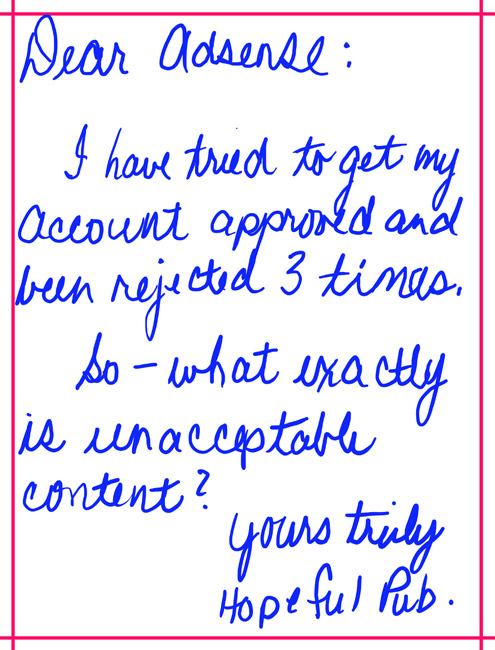 Dear Adsense:
I have tried to get my
account approved and
been rejected 3 times.
So - what exactly
is unacceptable
content?
yours truly
Hopeful Pub.